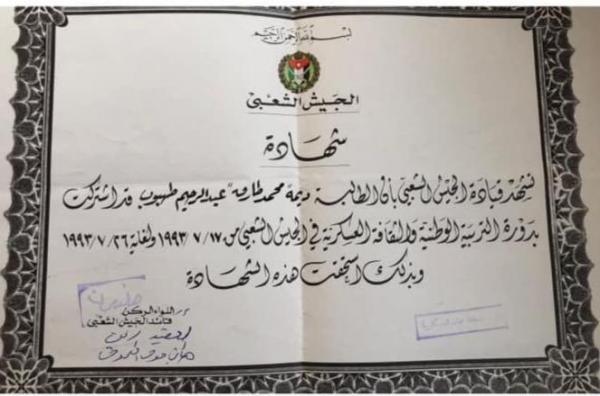 بسم الله الرحمن الرحيم
الجيش الشعبي
شهادة
تشهد قيادة الجيش الشعبي بأن الطالبة ديمة محمد طارق "عبدالرحيم طهبوب" قد اشتركت
بدورة التربية الوطنية والثقافة العسكرية في الجيش الشعبي من ١٧ / ٧ / ١٩٩٣ ولغاية ٢٦ / ٧ / ١٩٩٣
وبذلك استحقت هذه الشهادة
اللواء الركن
قائد الجيش الشعبي
العقيد الركن